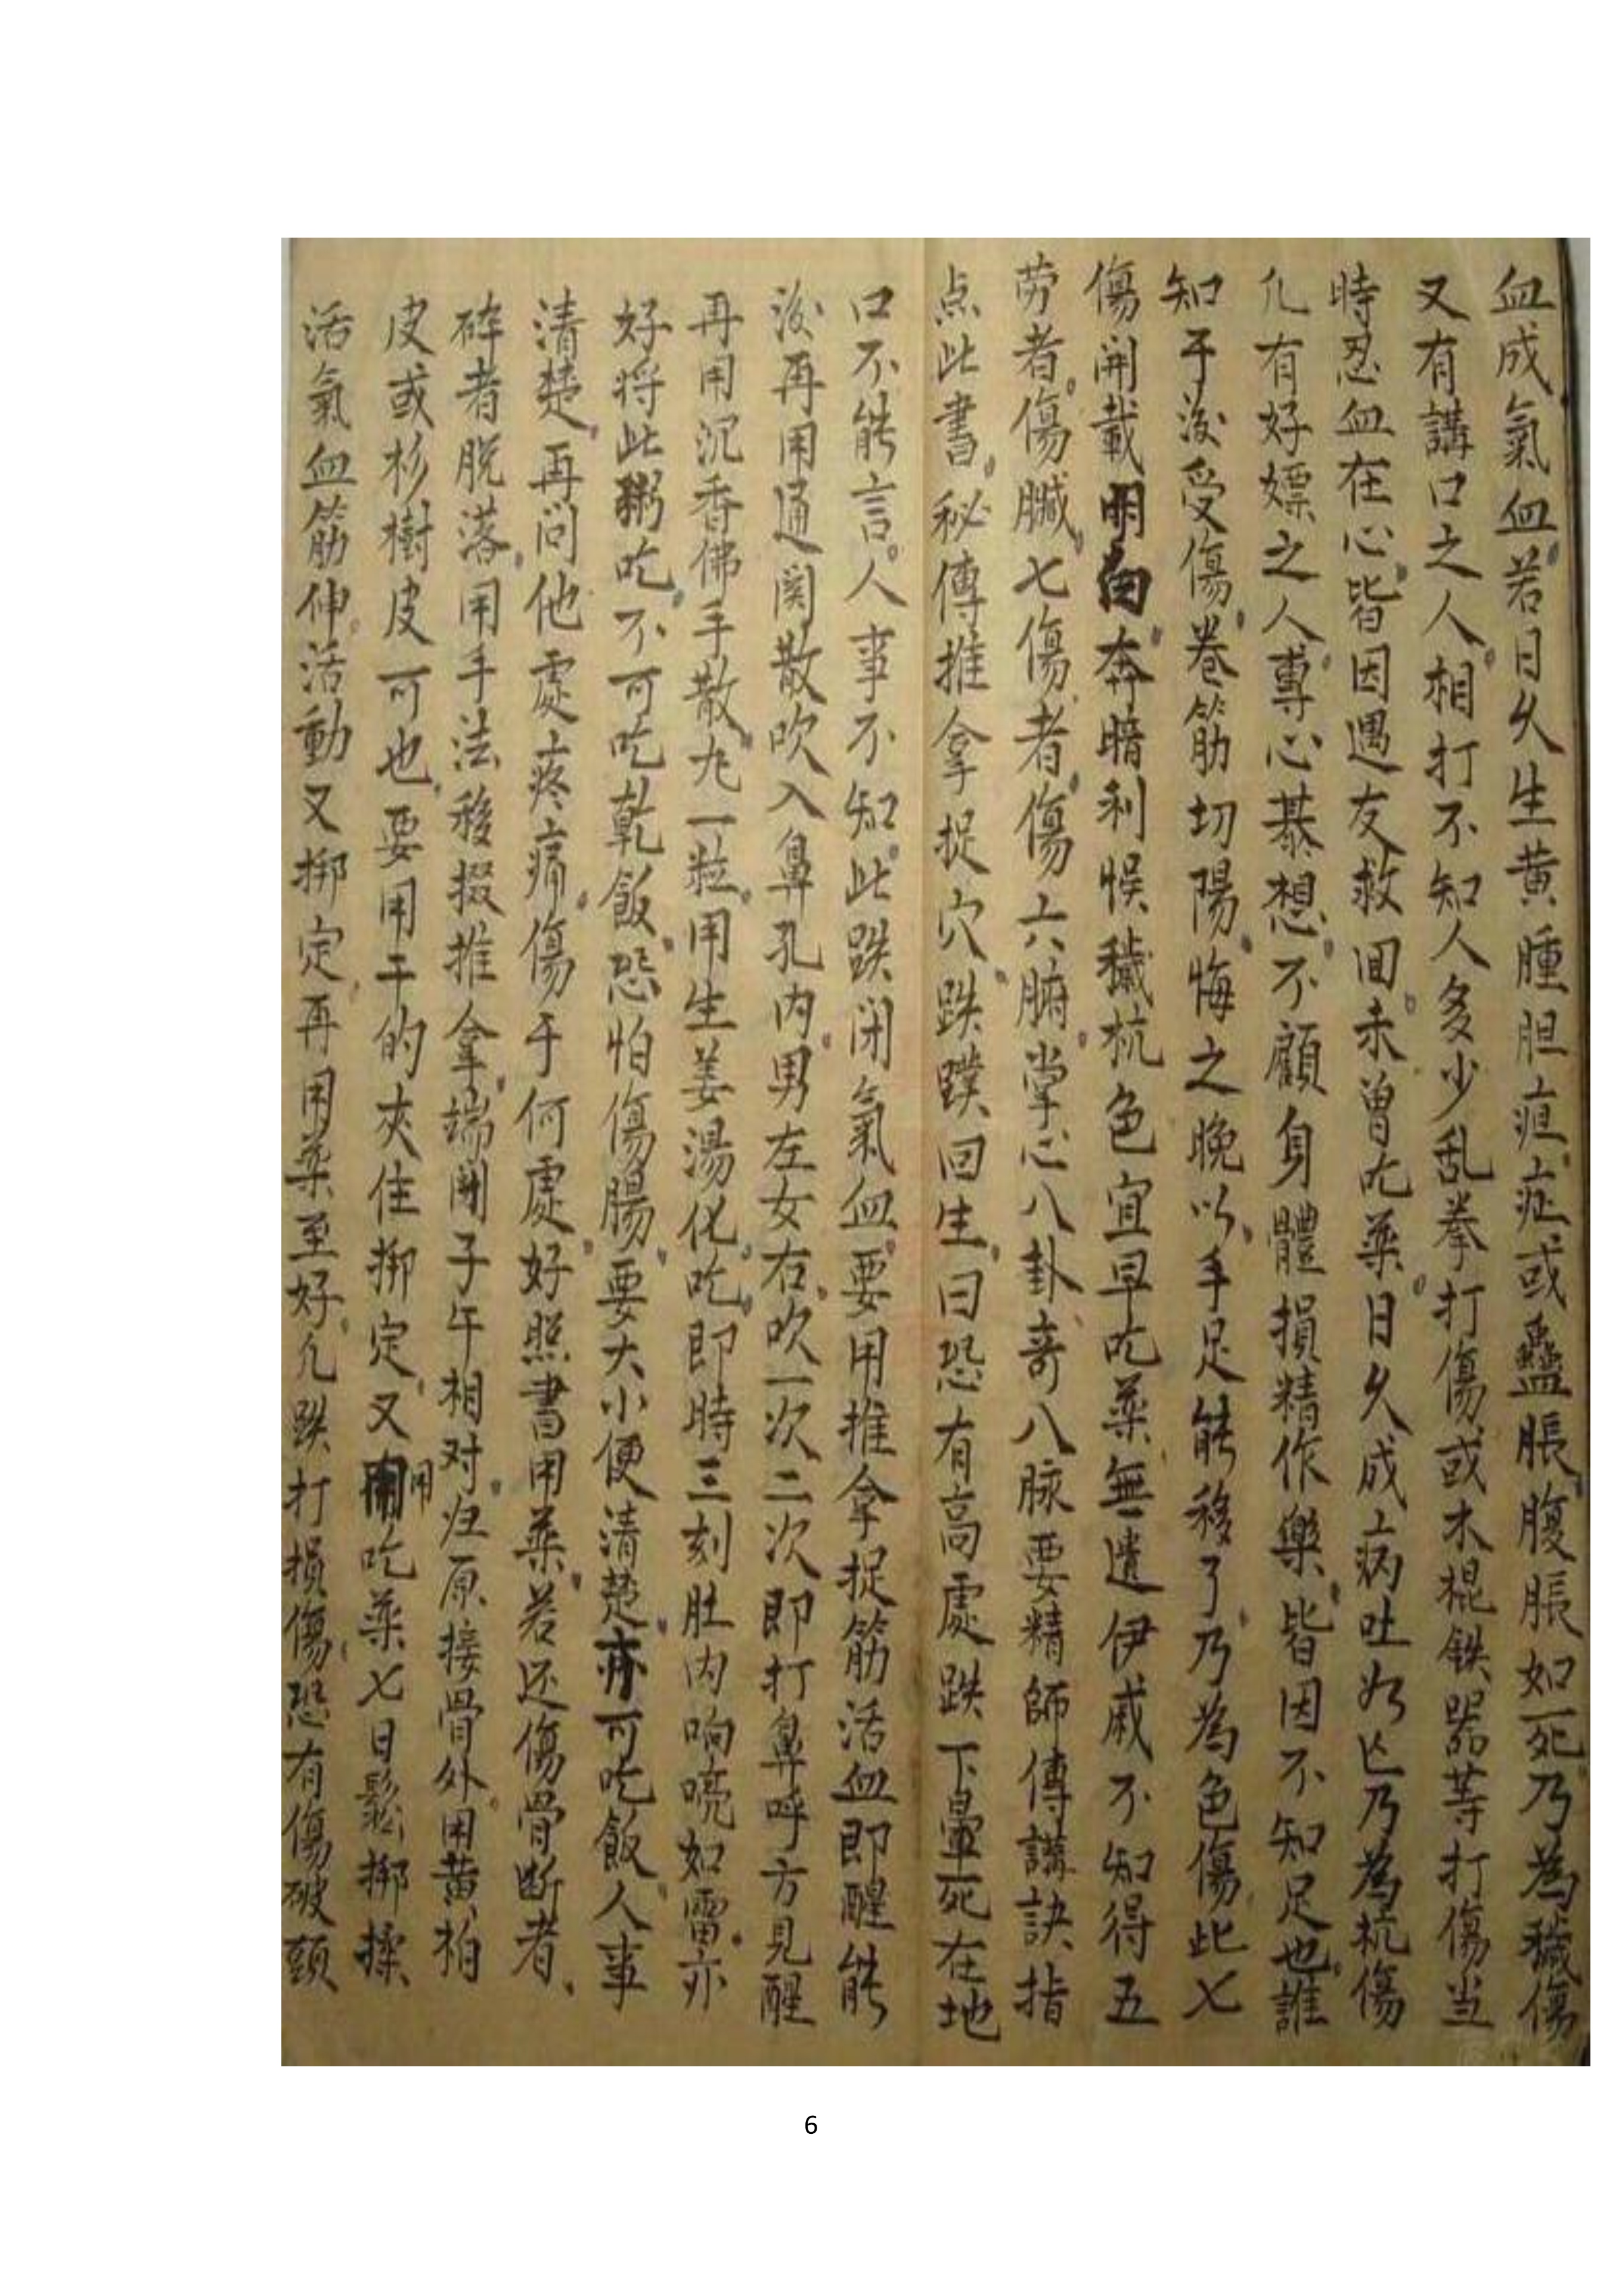 血成氣血若日久生黄腫胆疸症或蠱脹腹脹如死乃為穢傷
又有講口之人相打不知人多少乱拳打傷或木棍鉄器等打傷当
時忍血在心皆因遇友救回未曽吃藥日久成病吐血乃為杭傷
凢有好嫖之人專心慕想不顧身體損精作樂皆因不知足也誰
知于後受傷卷筋切陽悔之晚以手足能移了乃為色傷此七
傷開載明白奔暗利悮穢杭色宜早吃藥無遣伊戚不知得五
劳者傷臓七傷者傷六腑掌心八卦奇八脉要精師傳講訣指
点此書秘傳推拿捉穴跌蹼回生曰恐有高處跌下暈死在地
口不能言人事不知此跌闭氣血要用推拿捉筋活血即醒能
後再用通関散吹入鼻孔内男左女右吹一次二次即打鼻呼方見醒
再用沉香佛手散九一粒用生姜湯化吃即時三刻肚内响喨如雷亦
好将此粥吃不可吃乾飯恐怕傷腸要大小便清楚亦可吃飯人事
清楚再问他處疼痛傷于何處好照書用藥若还傷骨断者
碎者脱落用手法移掇推拿端開子午相对归原接骨外用黄柏
皮或杉樹皮可也要用干的夾住挷定又用吃藥七日鬆挷揉
活氣血筋伸活動又挷定再用藥至好凢跌打損傷恐有傷破頭
6